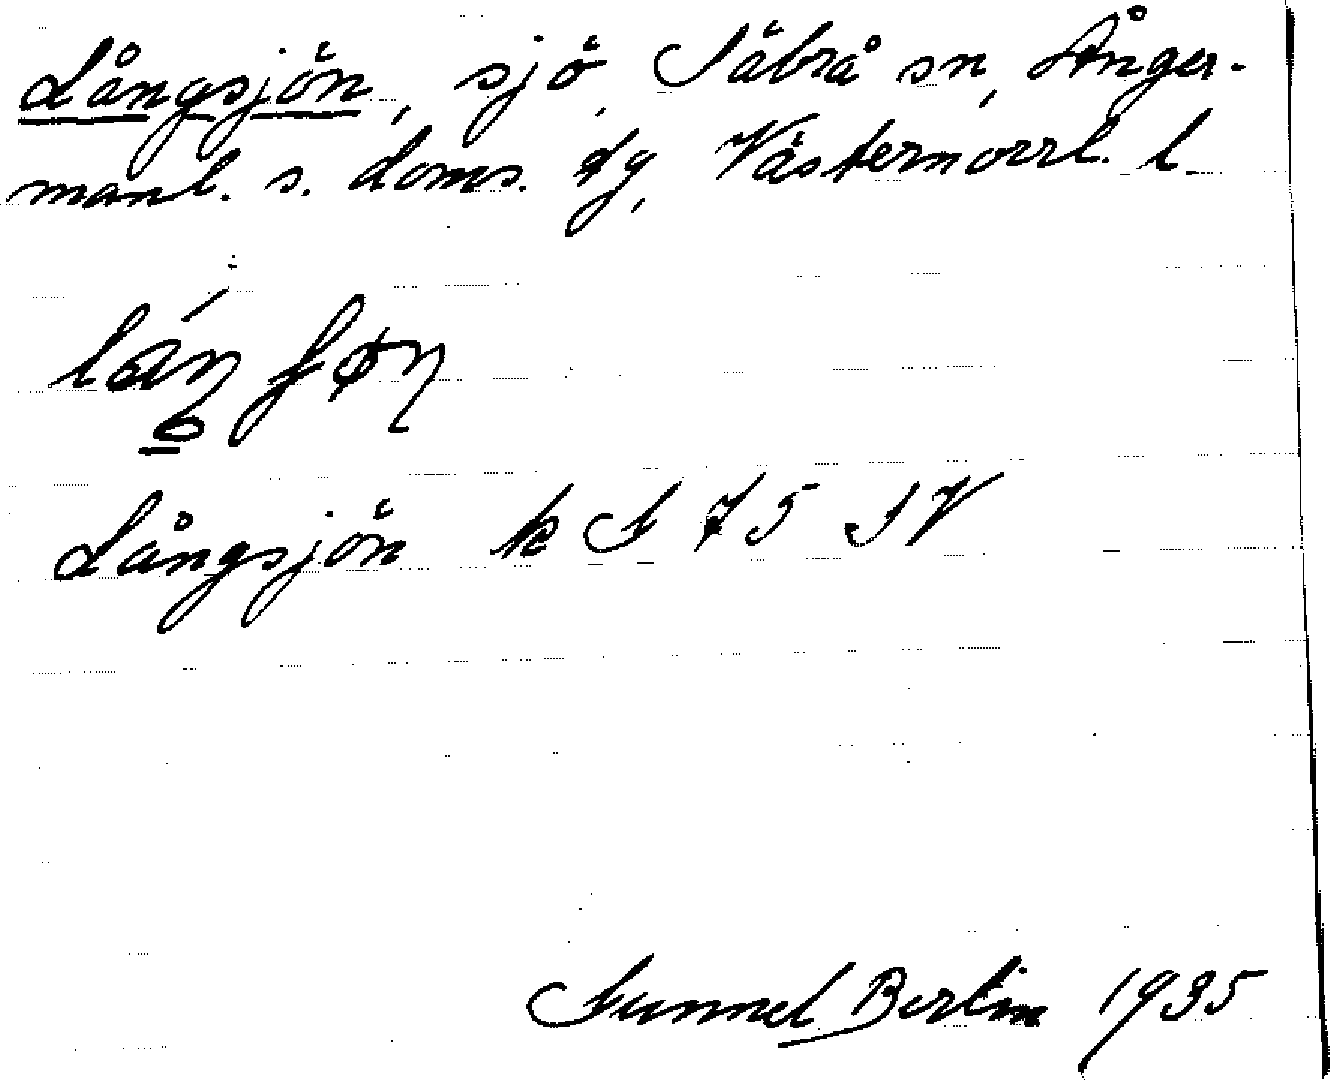 Långsjön, sjö, Säbrå sn, Ånger-
manl. s. doms. tg, Västernorrl. l.
Långsjön k S 75 SV
Gunnel Berlin 1935